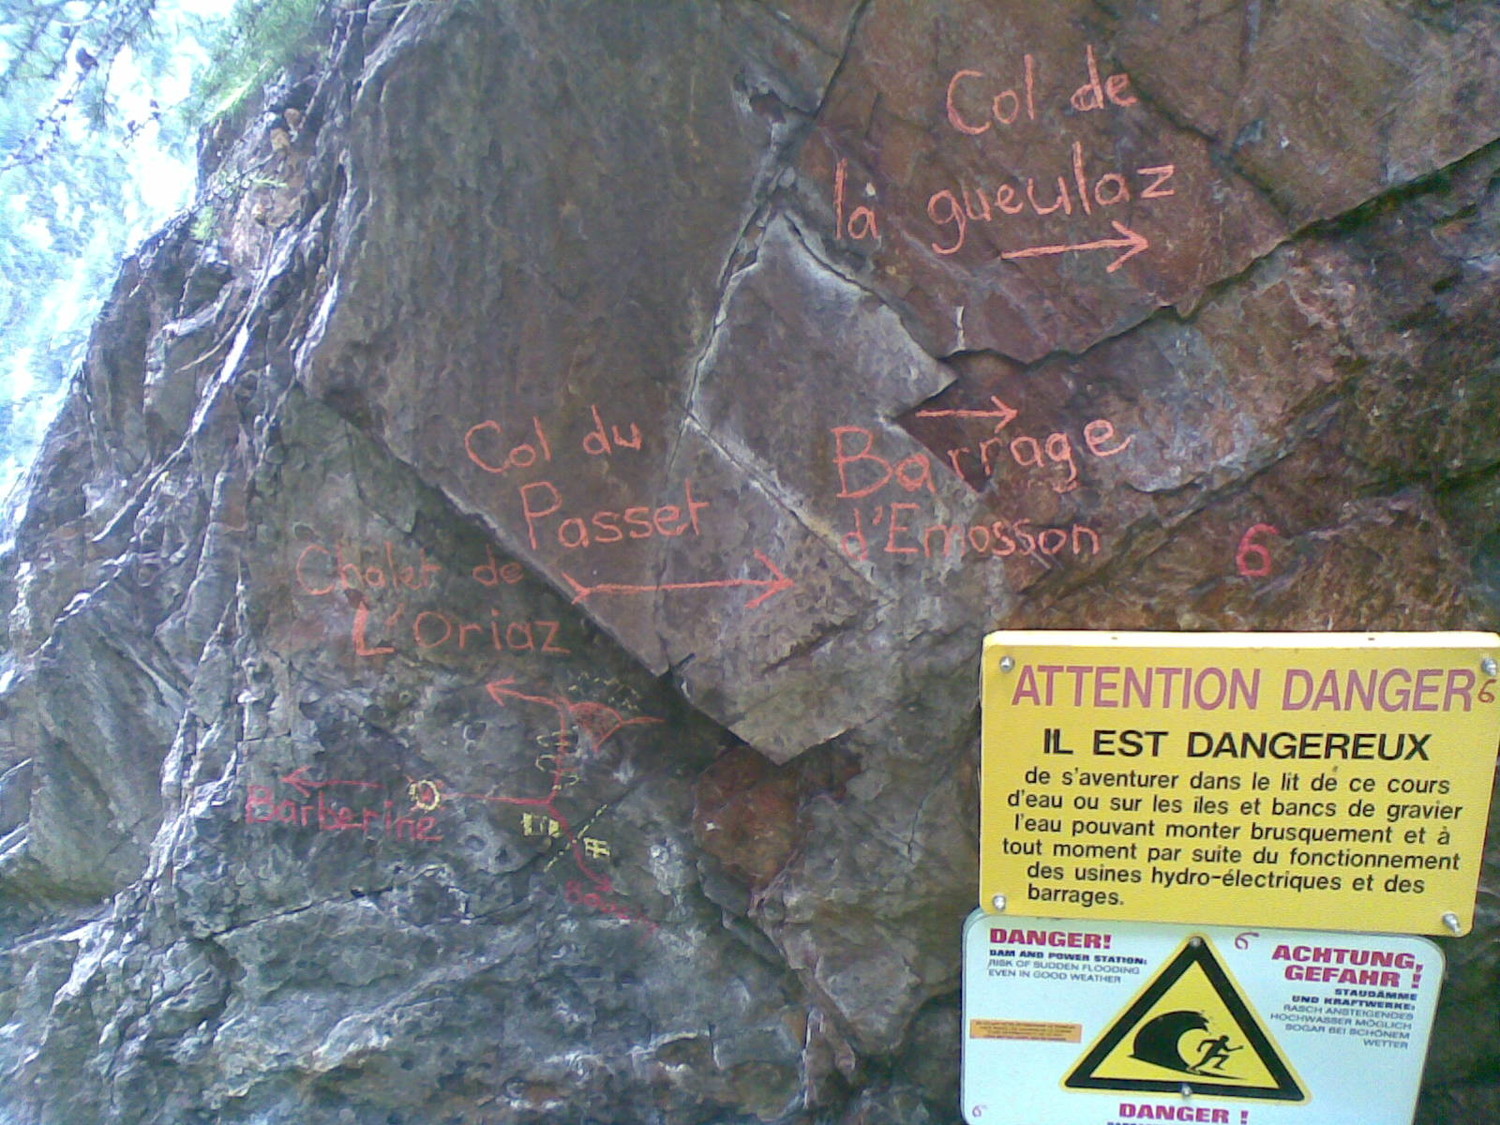 Col de
la gueulaz
Col du
Passet
Barrage
d'Emosson
Chalet de
L'Oriaz
Barberine
6
ATTENTION DANGER
6
IL EST DANGEREUX
de s'aventurer dans le lit de ce cours
d'eau ou sur les îles et bancs de gravier
l'eau pouvant monter brusquement et à
tout moment par suite du fonctionnement
des usines hydro-électriques et des
barrages.
DANGER!
DAM AND POWER STATION:
RISK OF SUDDEN FLOODING
EVEN IN GOOD WEATHER
6
ACHTUNG,
GEFAHR !
STAUDÄMME
UND KRAFTWERKE:
RASCH ANSTEIGENDES
HOCHWASSER MÖGLICH
SOGAR BEI SCHÖNEM
WETTER
6
DANGER !